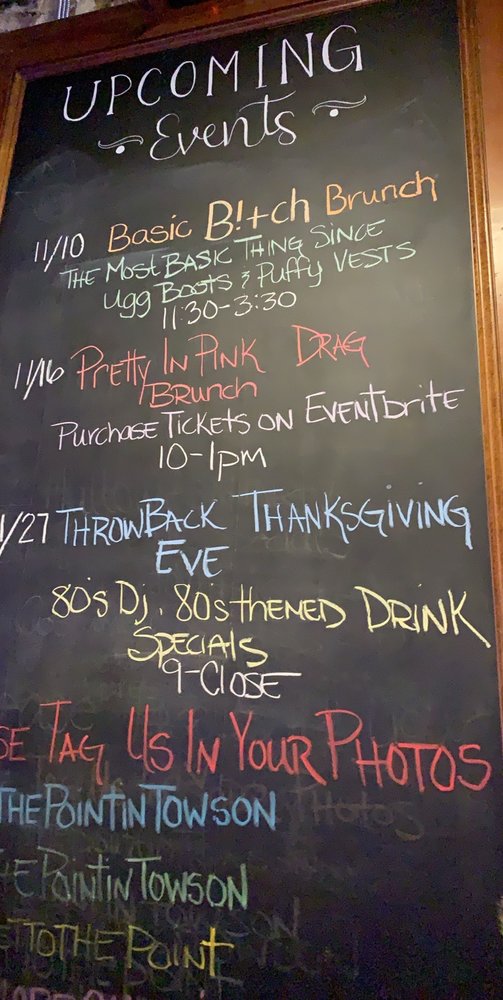 UPCOMING
Events
11/10 Basic B!+ch Brunch
THE MOST BASIC THING SINCE
Ugg Boots & Puffy VESTS
11:30-3:30
11/16 Pretty In Pink DRAG
BRUNCH
PURCHASE TICKETS ON EVENTbRITE
10-1pm
1/27 THROWBACK THANKSGIVING
EVE
80's Dj. 80's THEMED DRINK
SPECIALS
9-CLOSE
SE TAG US IN YOUR PHOTOS
THEPOINTINTOWSON
EPOINTINTOWSON
TTOTHEPOINT